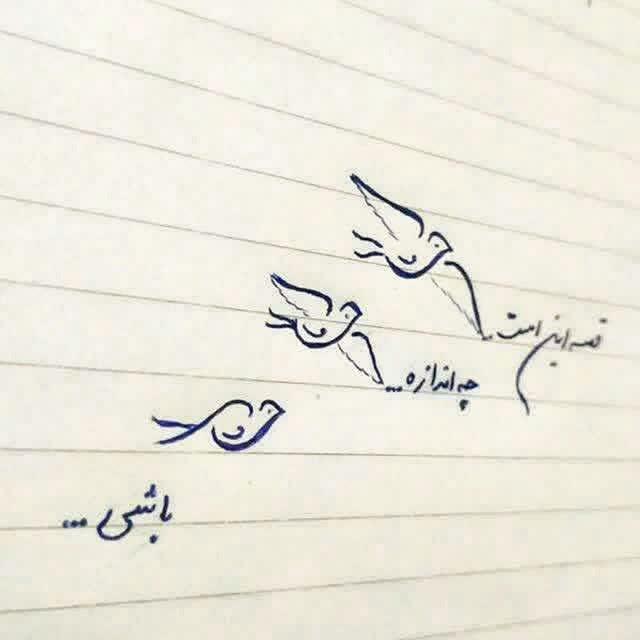 قصه این است..
چه اندازه...
باشی...